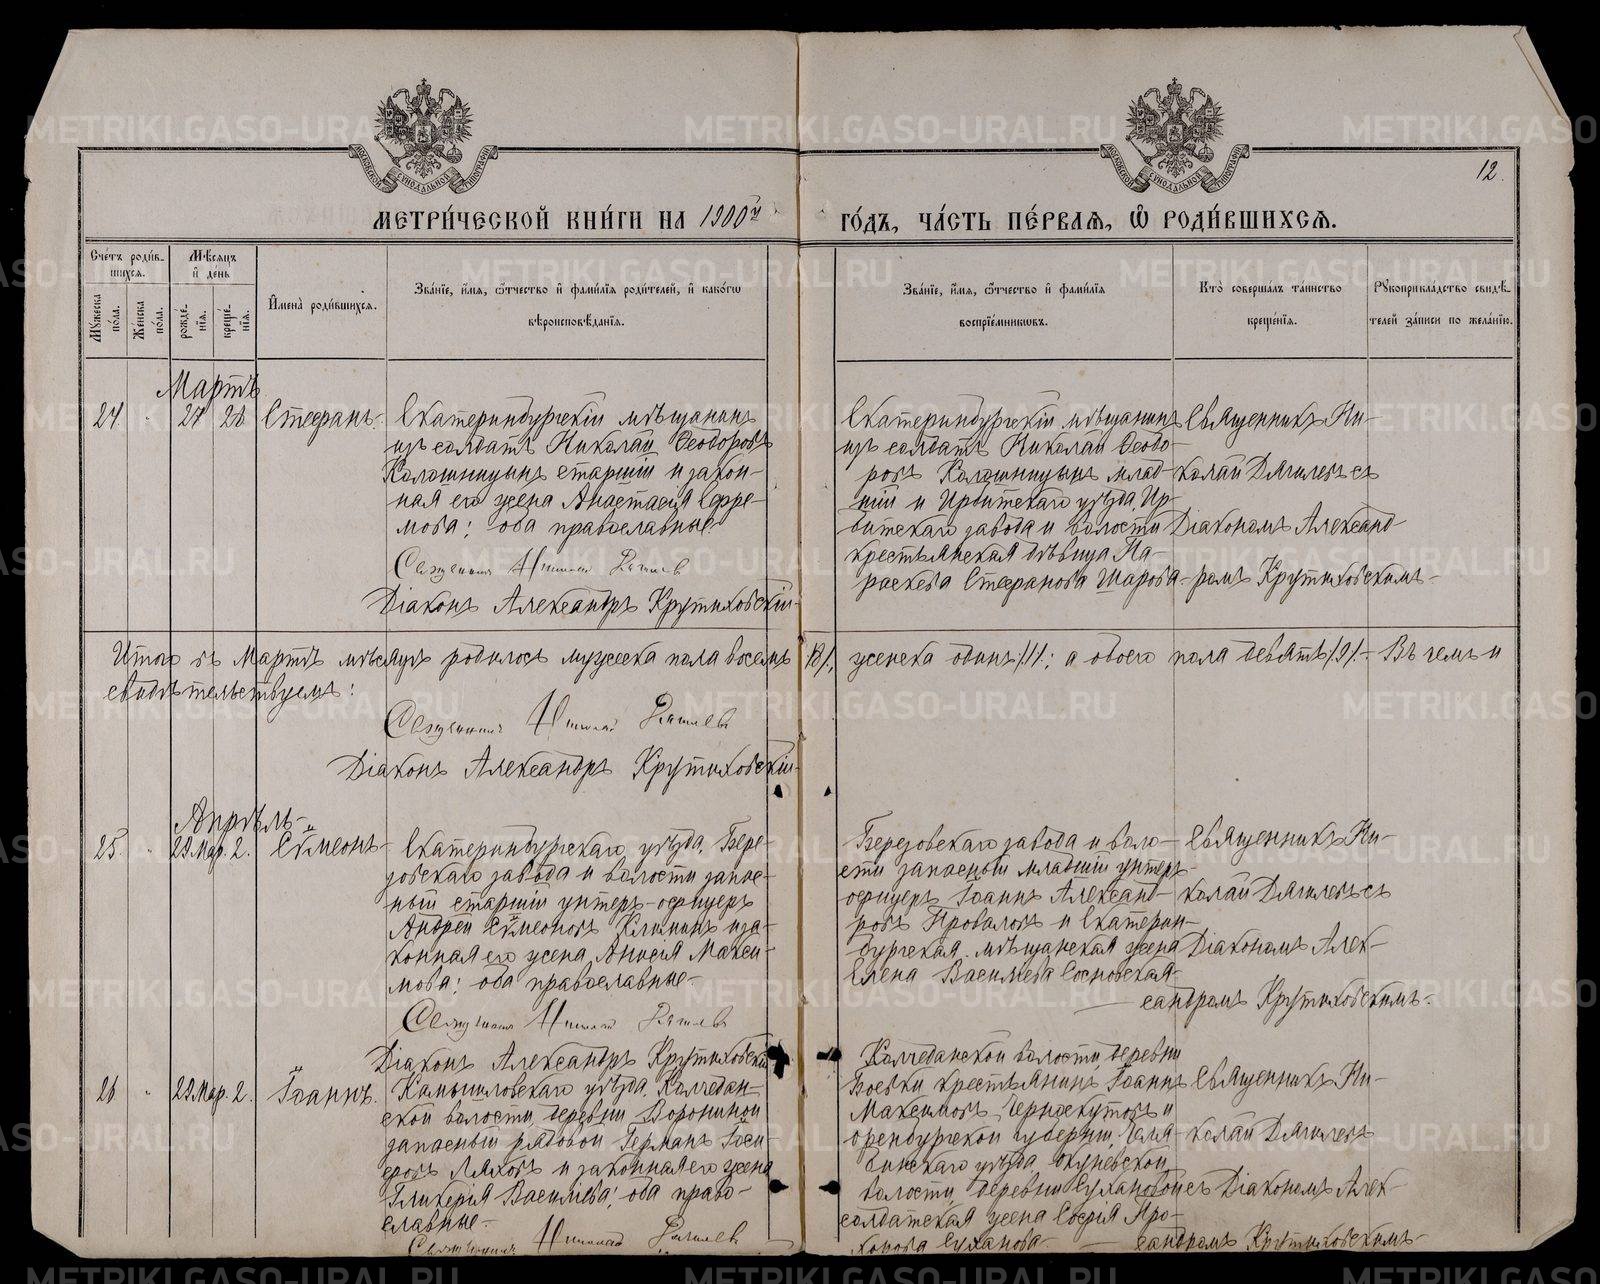 12.
МЕТРИ́ЧЕСКОЙ КНИ́ГИ НА 1900й
ГО́ДЪ, ЧА́СТЬ ПЕ́РВАѦ, Ѽ РОДИ́ВШИХСѦ.
Сче́тъ роди́в-
шихсѧ.
Мѣ́сѧцъ
и҆ де́нь
Мꙋ́жеска по́ла.
Же́нска по́ла.
рожде́-нїѧ.
креще́-нїѧ.
И҆мена̀ роди́вшихсѧ.
Зва́нїе, и҆́мѧ, ѻ҆́тчество и҆ фами́лїѧ роди́телей, и҆ како́гѡ
вѣроисповѣ́данїѧ.
Зва́нїе, и҆́мѧ, ѻ҆́тчество и҆ фами́лїѧ
воспрїе́мникѡвъ.
Кто̀ соверша́лъ та́инство
креще́нїѧ.
Рꙋкоприкла́дство свидѣ́-
телей за́писи по жела́нїю.
Мартъ
24 27 28 Стефанъ.
Екатеринбургскій мѣщанинъ
изъ солдатъ Николай Ѳеодоровъ
Калашницынъ старшій и закон-
ная его жена Анастасія Ефре-
мова; оба православные.
Священникъ Николай Дягилевъ
Діаконъ Александръ Крутиховскій
Екатеринбургскій мѣщанинъ
изъ солдатъ Николай Ѳеодо-
ровъ Калашницынъ млад-
шій и Ирбитскаго уѣзда, Ир-
битскаго завода и волости
крестьянская дѣвица Па-
раскева Стефанова Шарова
Священникъ Ни-
колай Дягилевъ съ
Діакономъ Александ-
ромъ Крутиховскимъ
Итого въ Мартѣ мѣсяцѣ родилось мужеска пола восемь /8/, женска одинъ /1/; а обоего пола девять /9/. Въ чемъ и
свидѣтельствуемъ:
Священникъ Николай Дягилевъ
Діаконъ Александръ Крутиховскій
Апрѣль
25. 29 Мар. 2. Сѷмеонъ
Екатеринбургскаго уѣзда, Бере-
зовскаго завода и волости запас-
ный старшій унтеръ-офицеръ
Андрей Сѷмеоновъ Климинъ и за-
конная его жена Анисія Макси-
мова; оба православные
Священникъ Николай Дягилевъ
Діаконъ Александръ Крутиховскій
Березовскаго завода и воло-
сти запасный младшій унтеръ-
офицеръ Іоаннъ Александ-
ровъ Проваловъ и Екатерин-
бургская мѣщанская жена
Елена Васильева Сосновская
Священникъ Ни-
колай Дягилевъ съ
Діакономъ Алек-
сандромъ Крутиховскимъ.
26 29 Мар. 2. Іоаннъ.
Камышловскаго уѣзда, Колчедан-
ской волости, деревни Ворониной
запасный рядовой Германъ Іоси-
фовъ Ляховъ и законная его жена
Гликерія Васильева; оба право-
славные
Священникъ Николай Дягилевъ
Колчеданской волости, деревни
Боевки крестьянинъ Іоаннъ
Максимовъ Черноскутовъ и
Оренбургской губерніи, Челя-
бинскаго уѣзда, Окуневской
волости, деревни Сухановой
солдатская жена Софія Про-
хорова Суханова
Священникъ Ни-
колай Дягилевъ
съ Діакономъ Алек-
сандромъ Крутиховскимъ
METRIKI.GASO-URAL.RU